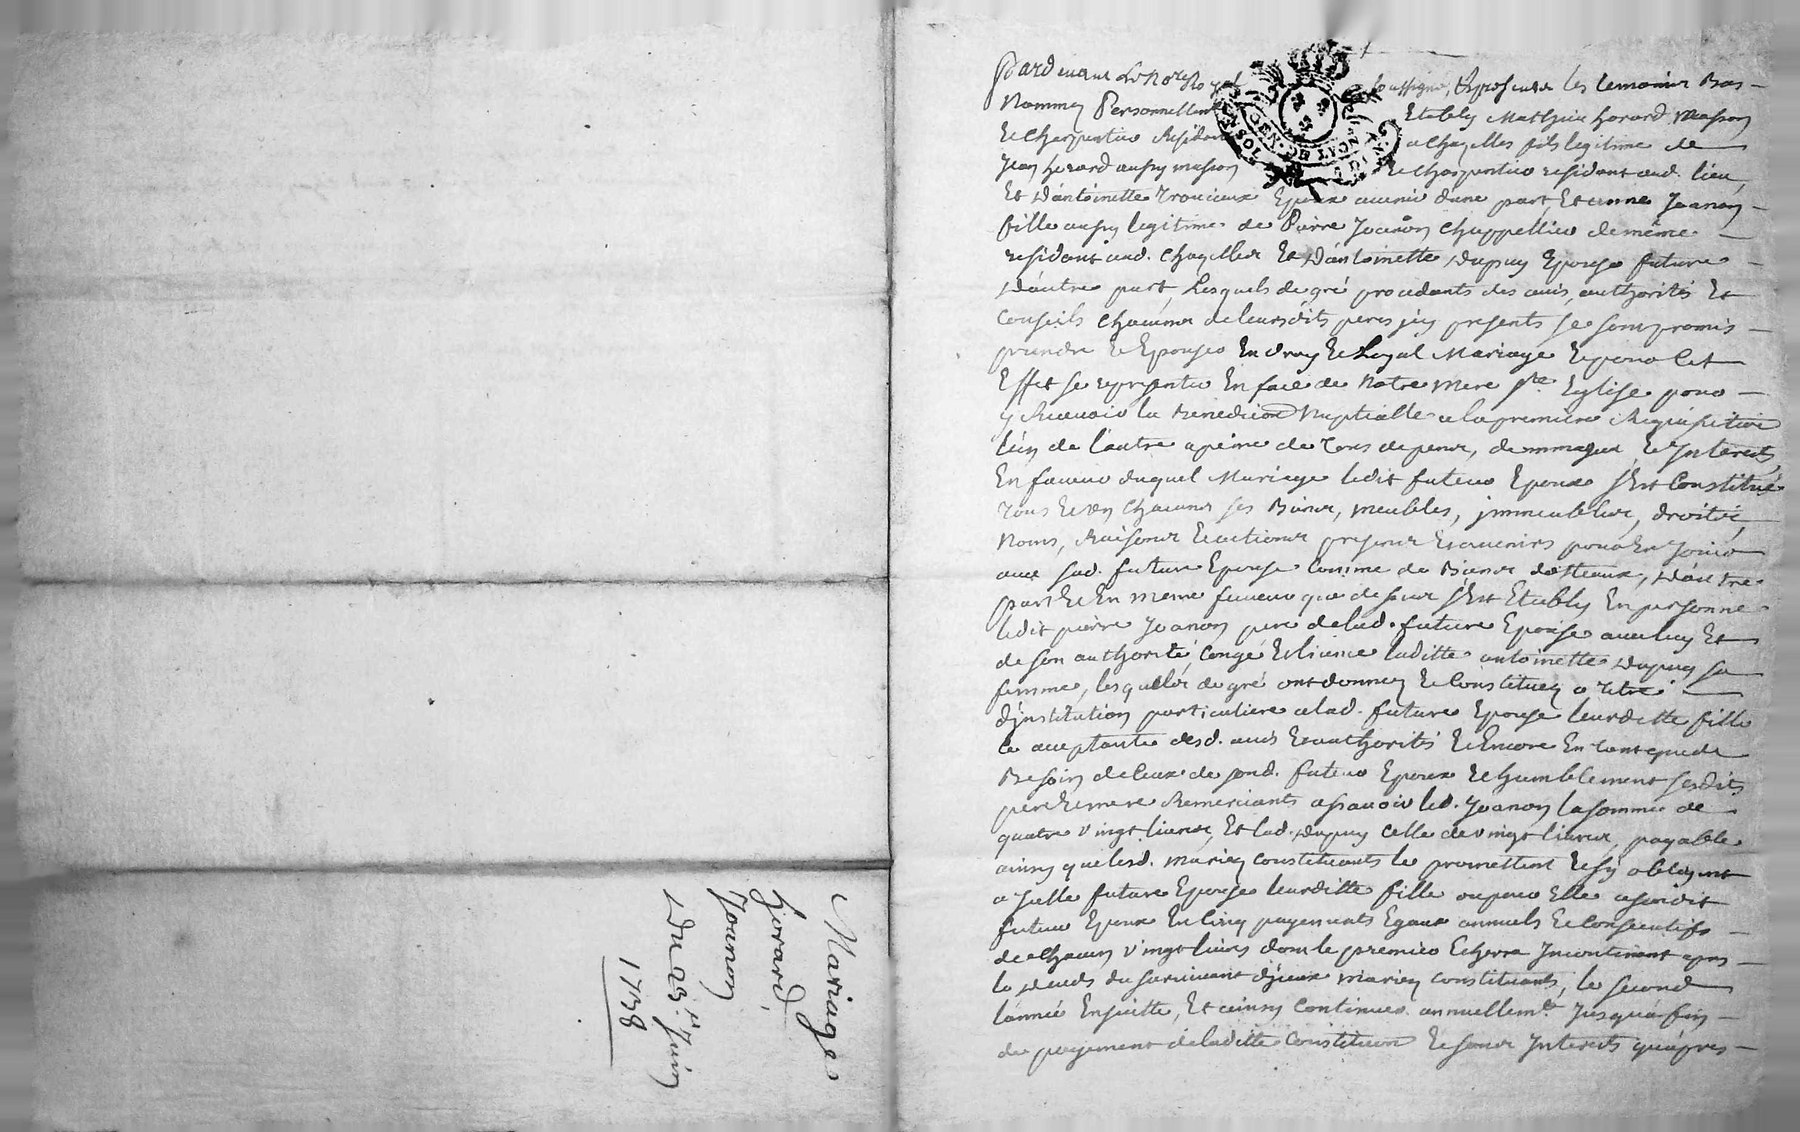 Mariage
herard,
Joanon
Du 23e Juin
1738
GEN. DE LYON
Pardevant Le No.re Royal soussigné, & presents les temoins Bas
Nommez Personnellement Etably Mathieu herard masson
et Charpentier Residant a Chazelles fils legitime de
Jean herard aussy masson et charpentier residant aud. lieu,
Et D'antoinette Epoux avenir d'une part, Et anne Joanon
fille aussy legitime de Pierre Joanon Chappellier de même
residant aud. Chazelles Et D'antoinette Dupuy Epouse future
D'autre part, Lesquels de gré procedants des avis, authorités Et
Conseils chacuns de leursdits peres icy presents se sont promis
prendre & Epouser En vray & Loyal Mariage & pour Cet
Effet se representer En face de Notre mere Ste Eglise pour
y Recevoir la Benediction Nuptialle a la premiere Requisition
l'un de l'autre a peine de tous depens, dommages & Interests,
En faveur duquel Mariage ledit futeur Epoux s'Est Constitué
tous & un chacuns ses Biens, meubles, immeubles, droits,
Noms, Raisons & actions presens & avenirs pour En Jouir
avec sad. future Epouse Comme de Biens dotteaux, D'autre
part & En meme faveur que dessus s'Est Etably En personne
ledit pierre Joanon pere de lad. future Epouse avec luy Et
de son authorité, congé & licence laditte antoinette Dupuy sa
femme, lesquels de gré ont donnez & Constituez a titre
d'institution particuliere a lad. future Epouse leurditte fille
ce acceptante desd. avis & authorités & Encore En tant que de
Besoin de celuy de sond. futeur Epoux & humblement sesdits
pere & mere Remerciants assavoir led. Joanon la somme de
quatre vingt livres, Et lad. Dupuy celle de vingt livres, payable
ainsy que lesd. mariez constituants le promettent & s'y obligent
a Jcelle future Epouse leurditte fille ou pour Elle a sondit
futeur Epoux En Cinq payements Egaux annuels & Consecutifs
de Chacun vingt livres dont le premier Echerra Incontinent apres
le Deceds du survivant d'jceux mariez constituants, le second
l'année Ensuitte, Et ainsy Continuer annuellem.t Jusqu'a fin
de payement de laditte Constitution & sans Interests qu'apres